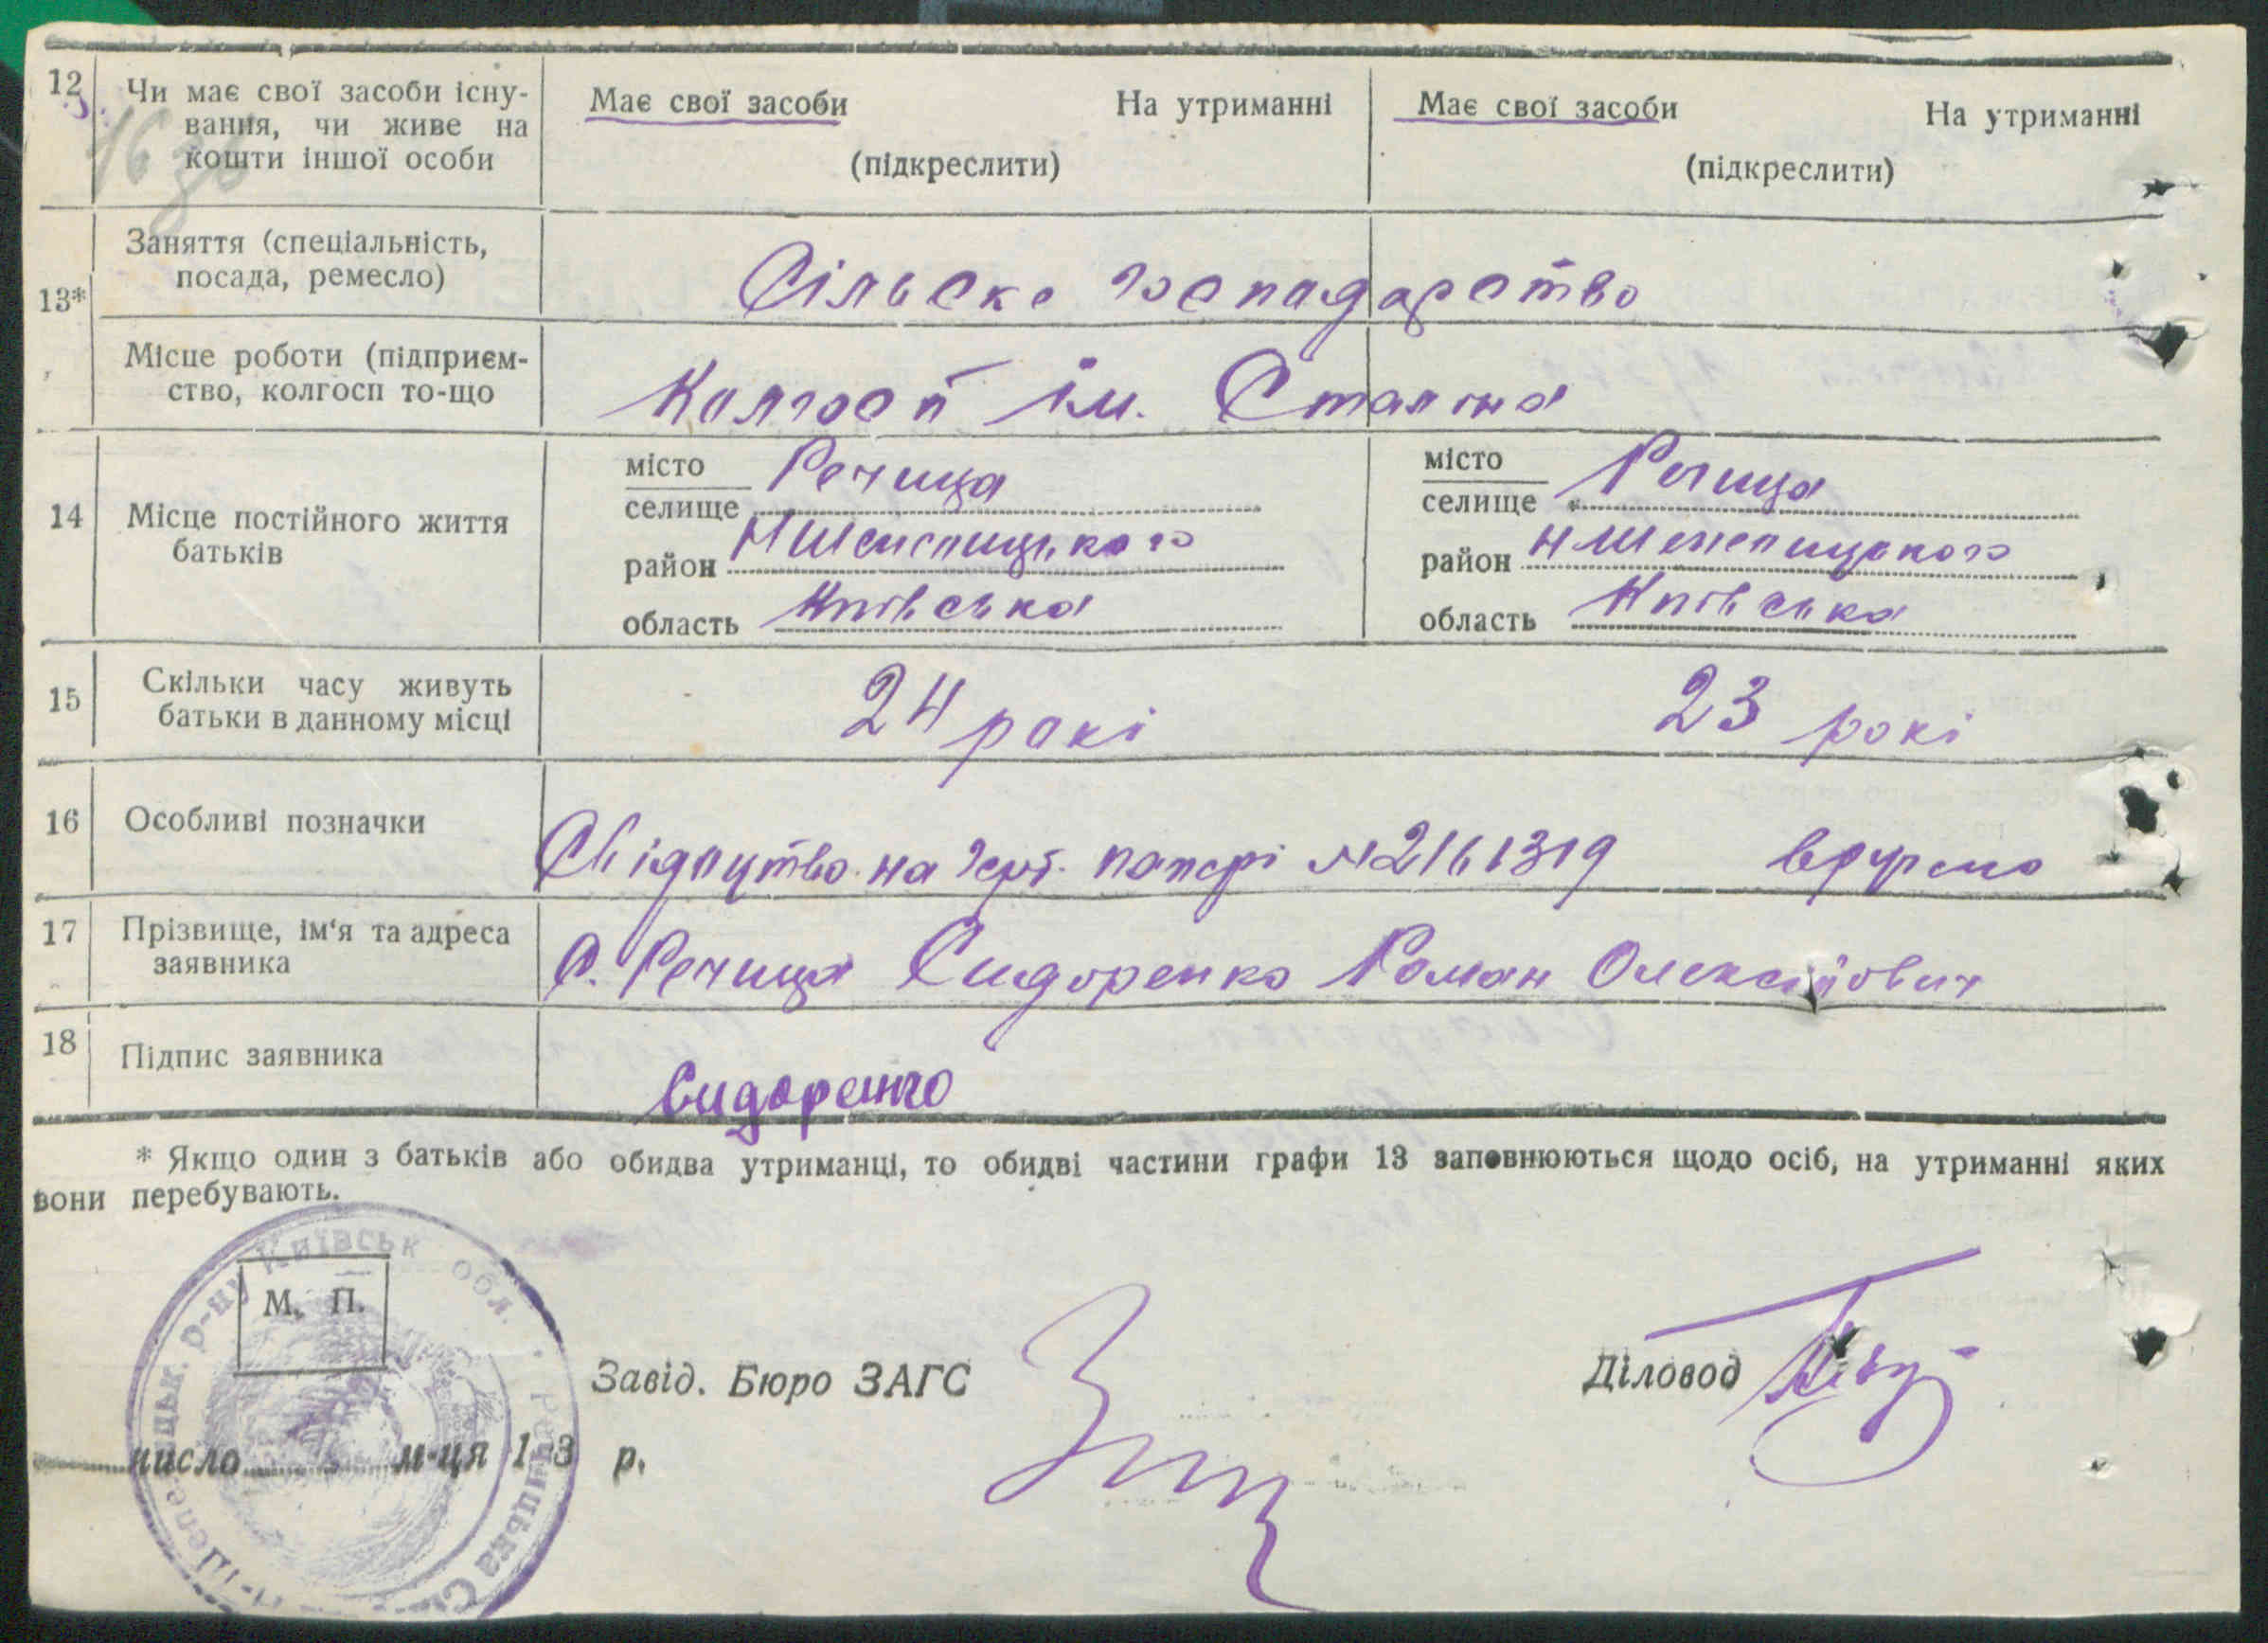 12 Чи має свої засоби існу- Має свої засоби На утриманні Має свої засоби На утриманні
вання, чи живе на
кошти іншої особи (підкреслити) (підкреслити)
13* Заняття (спеціальність,
посада, ремесло) Сільске господарство
Місце роботи (підприєм-
ство, колгосп то-що Колгосп ім. Сталіна
14 Місце постійного життя
батьків
місто Речица місто Речица
селище селище
район район
область Київська область Київська
15 Скільки часу живуть
батьки в данному місці 24 рокі 23 рокі
16 Особливі позначки на папері № 2161319
17 Прізвище, ім'я та адреса
заявника С. Речица Сидоренко Роман Олексійович
18 Підпис заявника Сидоренко
* Якщо один з батьків або обидва утриманці, то обидві частини графи 13 заповнюються щодо осіб, на утриманні яких
вони перебувають.
М. П.
Київськ обл.
Завід. Бюро ЗАГС Діловод
число м-ця 193 р.